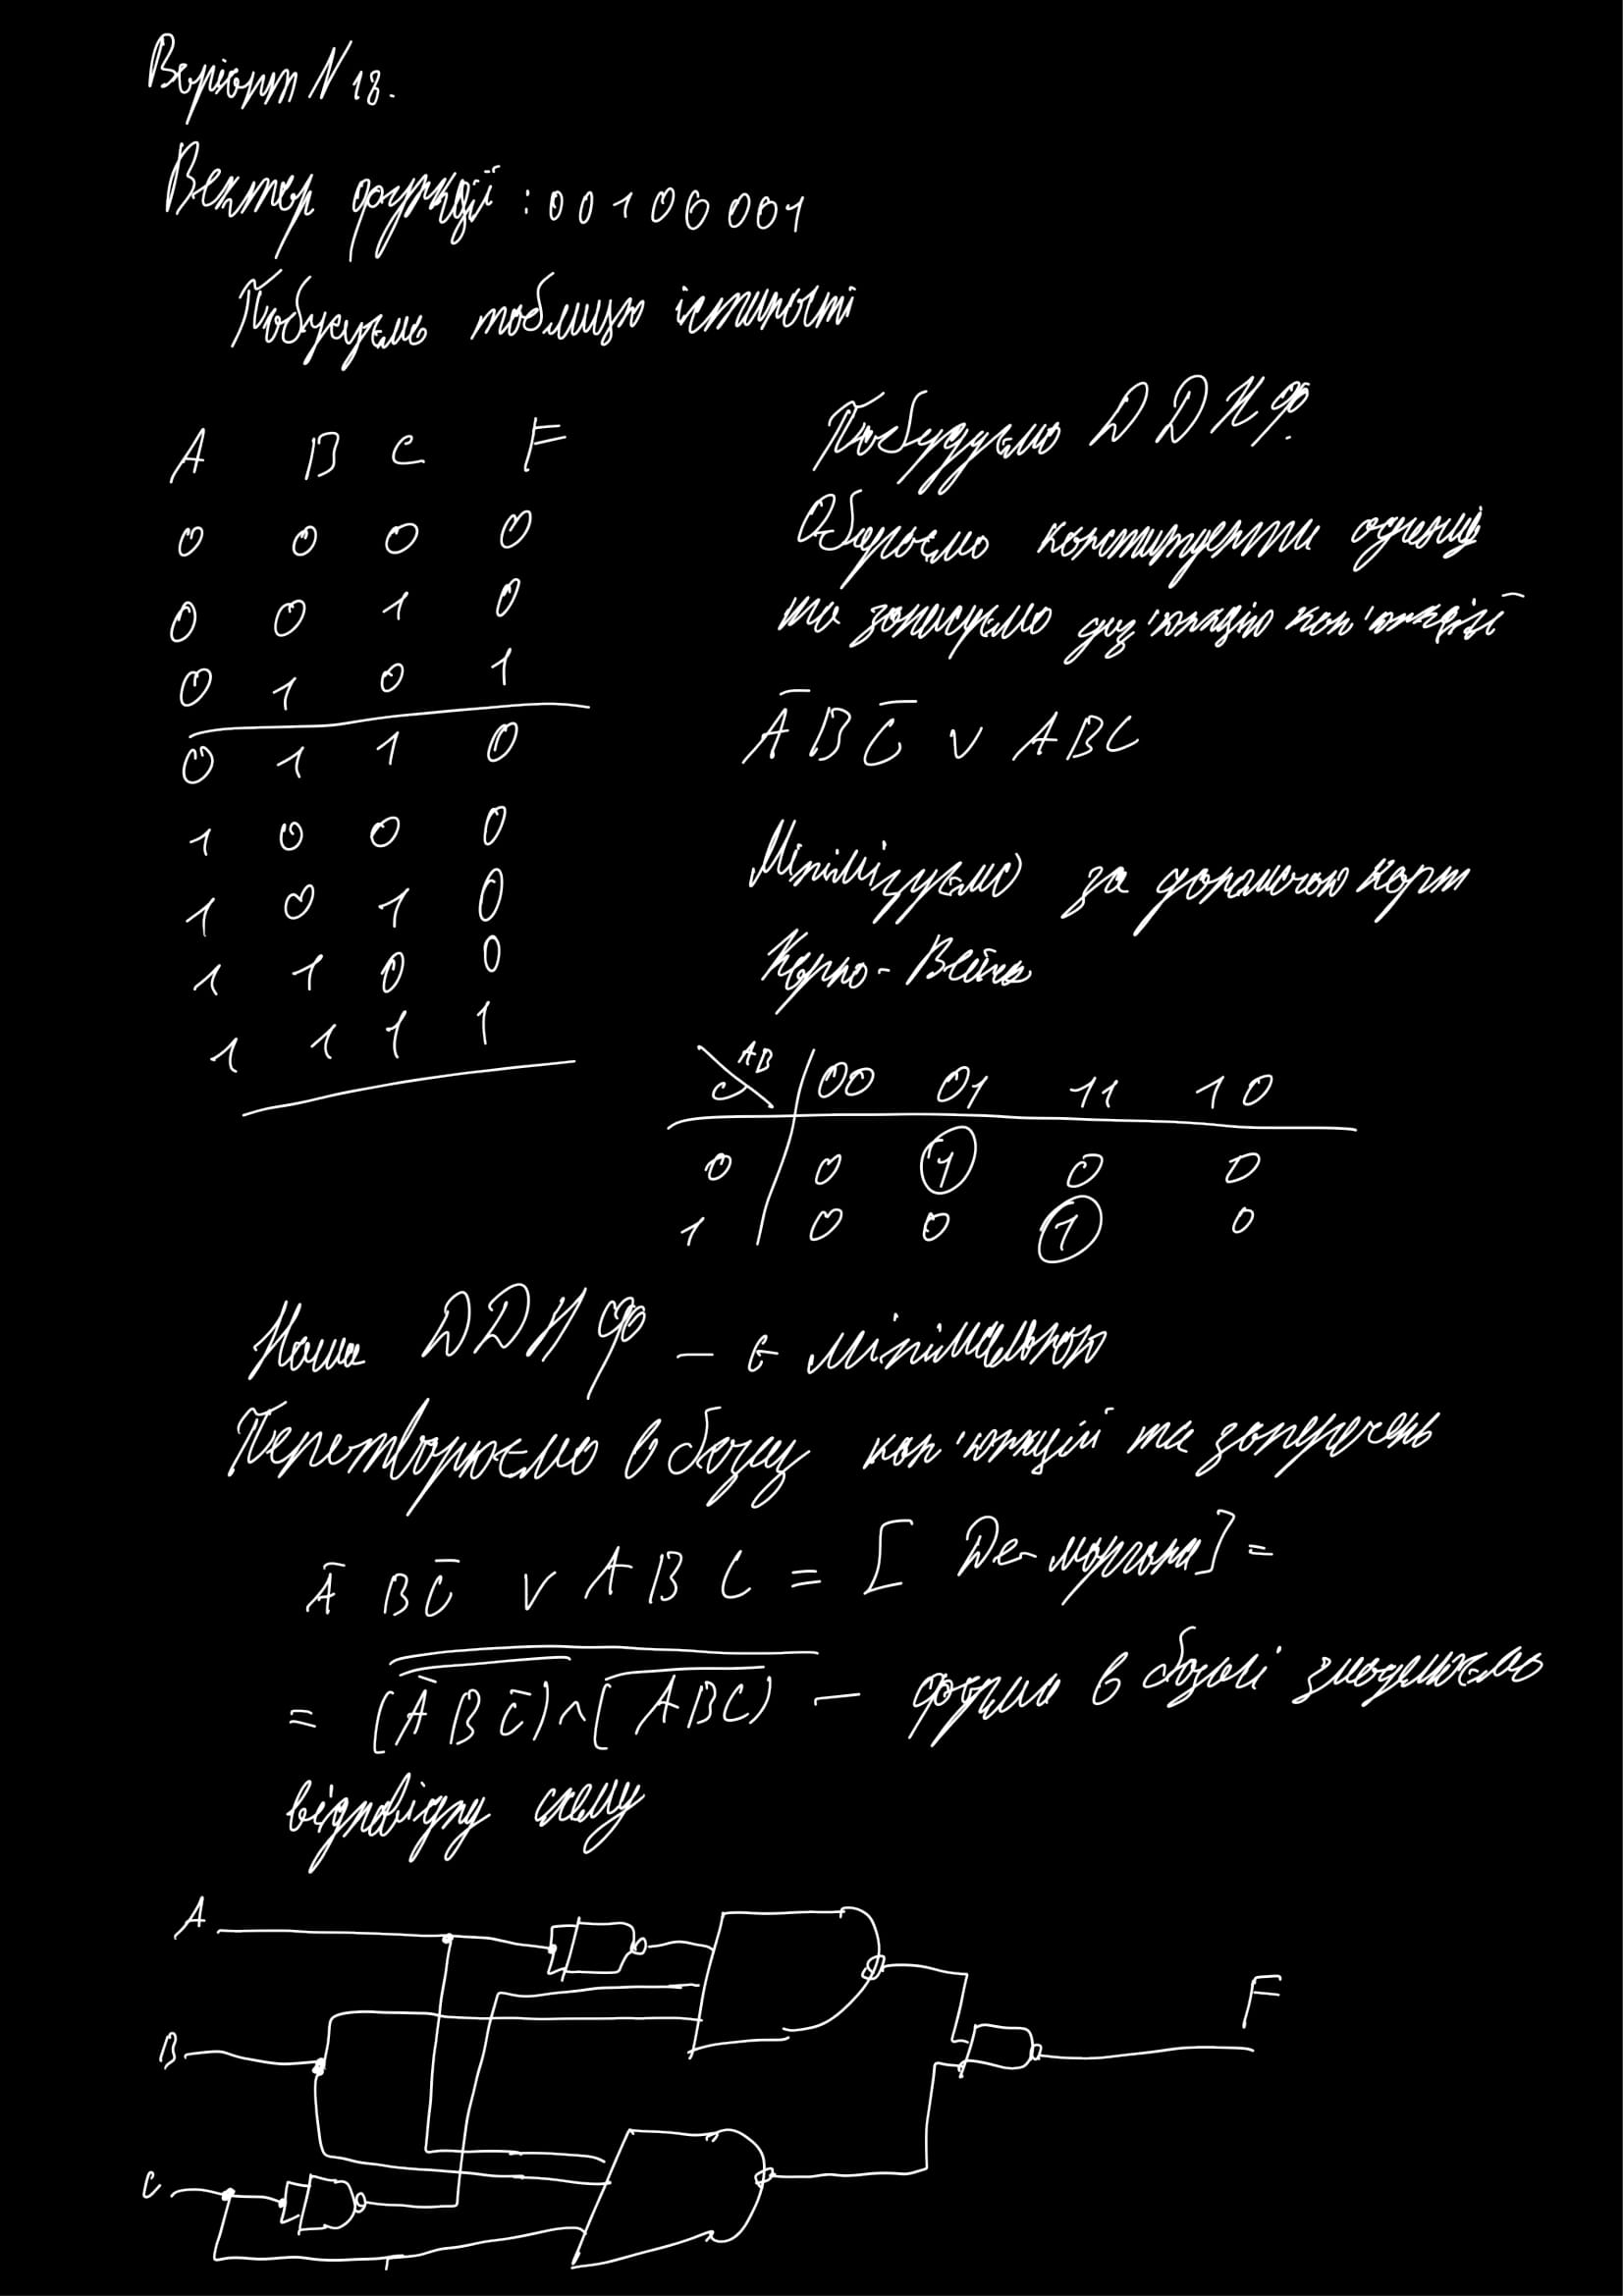 Варіант N 18.
Вектор функції : 00100001
Побудуємо таблицю істиності
A B C F
0 0 0 0
0 0 1 0
0 1 0 1
0 1 1 0
1 0 0 0
1 0 1 0
1 1 0 0
1 1 1 1
Побудуємо ДДНФ.
Обираємо конституенти одиниці
та записуємо диз'юнкцію кон'юнкцій
A̅ B C̅ ∨ A B C
Мінімізуємо за допомогою карт
Карно-Вейча
C \ AB 00 01 11 10
0 0 1 0 0
1 0 0 1 0
Наша ДДНФ – є мінімальною
Перетворюємо в базу кон'юнкцій та заперечень
A̅ B C̅ ∨ A B C = [ Де-моргана ] =
= \overline{\overline{(A̅ B C̅)} ∧ \overline{(A B C)}} – форма в базі
відповідну схему
A
B
C
F